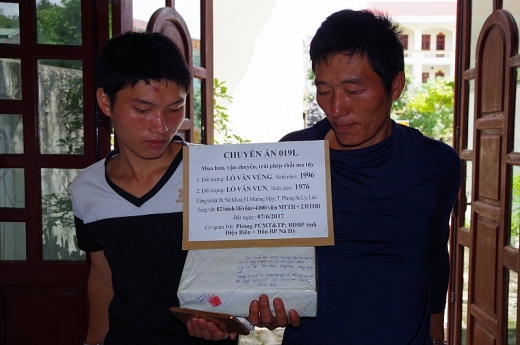 CHUYÊN ÁN 019L
Mua bán, vận chuyển, trái phép chất ma túy
1. Đối tượng: LÒ VĂN VÙNG, Sinh năm: 1996
2. Đối tượng: LÒ VĂN VƯN, Sinh năm: 1976
Cùng trú tại: B. Na Khoa, H. Mường Mày, T. Phong Sa Lỳ, Lào
Tang vật: 02 bánh Hêrôin+4.000 viên MTTH + 2 ĐTDĐ
Bắt ngày: 07/6/2017
Cơ quan bắt: Phòng PCMT&TP; BĐBP tỉnh
Điện Biên + Đồn BP Na Hỳ